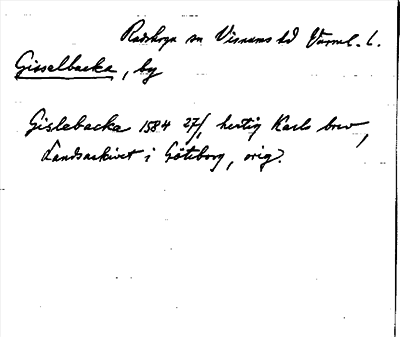 Rudskoga sn Visnums hd Värml. l.
Gisselbacka, by
Gislebacka 1584 27/1 hertig Karls brev,
Landsarkivet i Göteborg, orig.